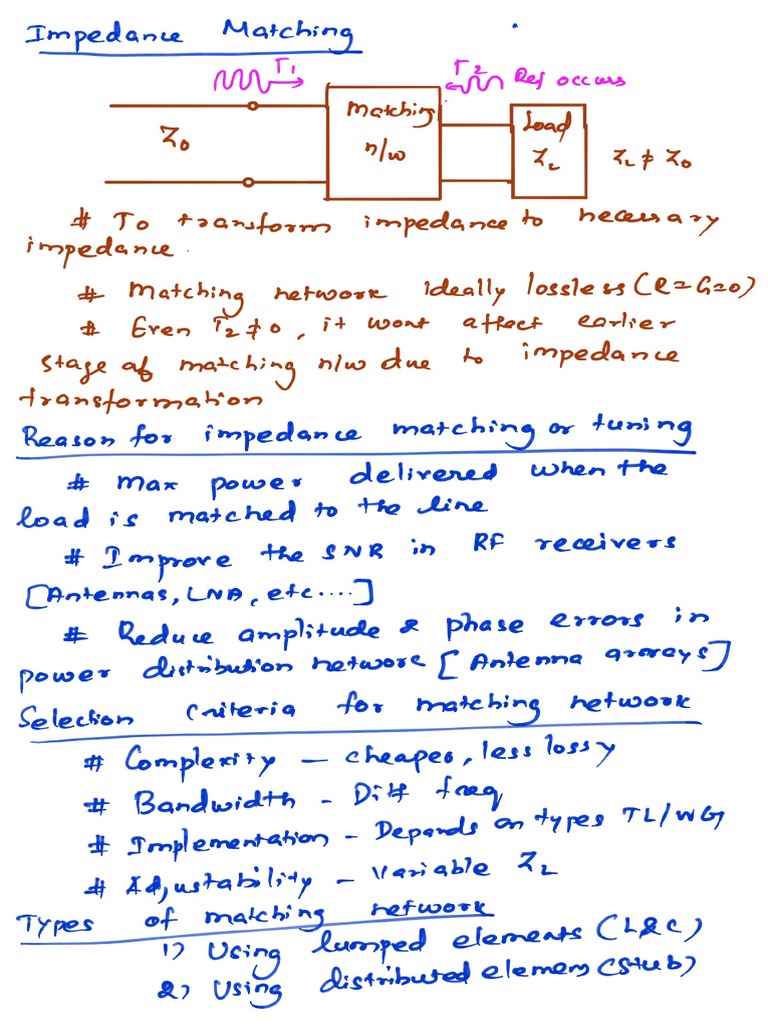 Impedance Matching
Γ1 Γ2 Ref occurs
Z0 Matching n/w Load ZL ZL ≠ Z0
# To transform impedance to necessary
impedance.
# Matching network ideally lossless (R=G=0)
# Even Γ2≠0, it wont affect earlier
stage of matching n/w due to impedance
transformation
Reason for impedance matching or tuning
# Max power delivered when the
load is matched to the line
# Improve the SNR in RF receivers
[Antennas, LNA, etc....]
# Reduce amplitude & phase errors in
power distribution network [Antenna arrays]
Selection Criteria for matching network
# Complexity – cheaper, less lossy
# Bandwidth – Diff freq
# Implementation – Depends on types TL/WG
# Adjustability – Variable ZL
Types of matching network
1) Using lumped elements (L&C)
2) Using distributed elemens (Stub)